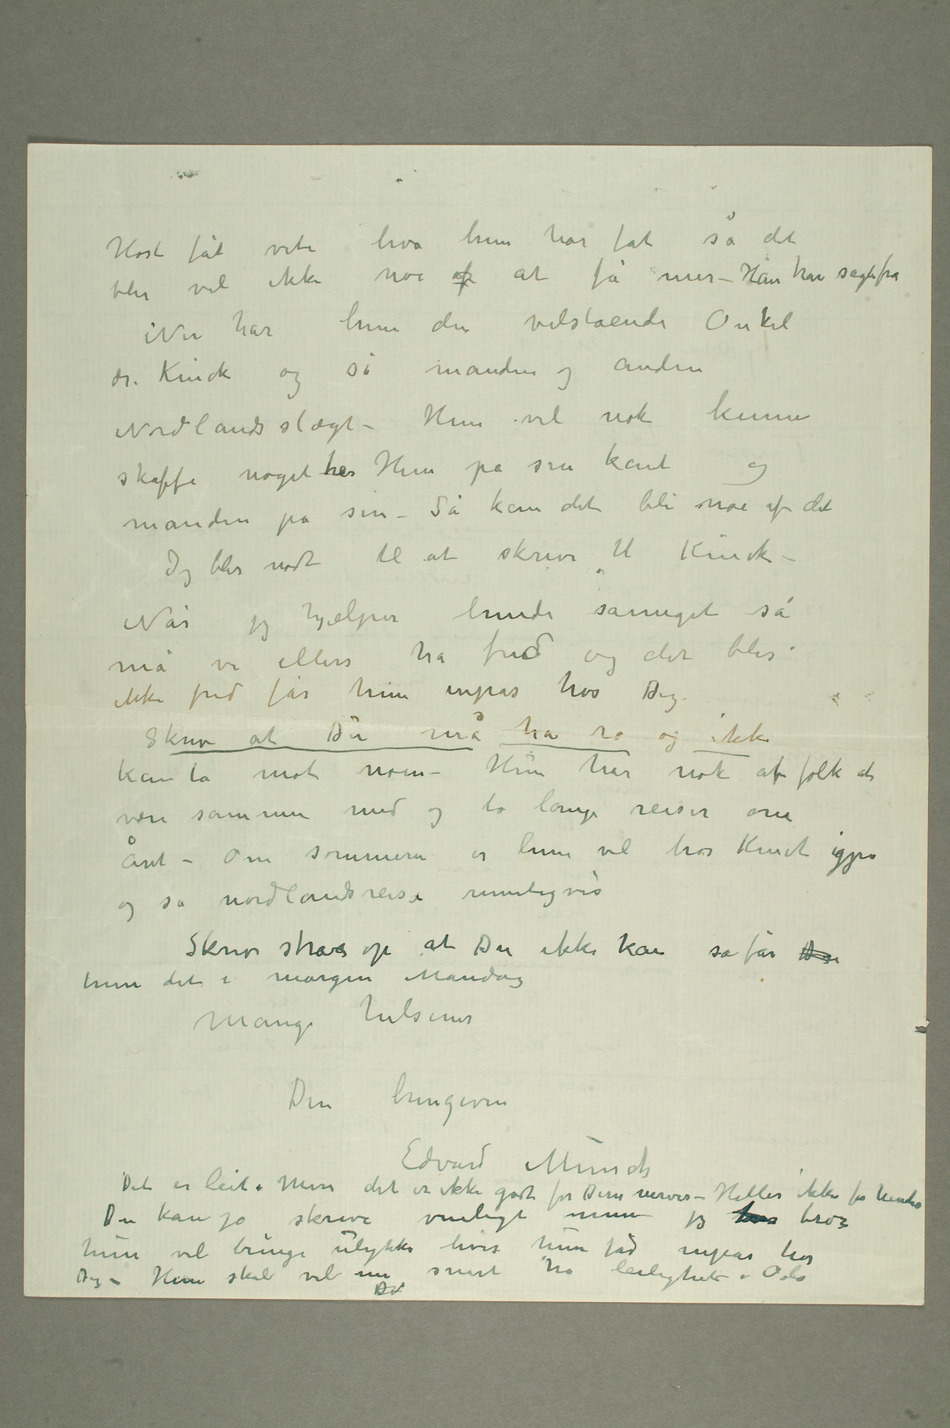 Høst fåt vite hva hun har fåt så det
blir vel ikke noe af at få mer – Han har sagt fra
Nu har hun den velstående Onkel
dr. Kinck og så manden og anden
Nordlandsslægt – Hun vil nok kunne
skaffe noget hos Hun på sin kant og
manden på sin – Så kan det bli noe af det
Jeg blir nødt til at skrive til Kinck –
Når jeg hjælper hende såmeget så
må vi ellers ha fred og det blir
ikke fred får hun innpas hos Dig.
Skriv at Du må ha ro og ikke
kan ta mot noen – Hun har nok af folk at
være sammen med og to lange reiser om
året – Om sommeren er hun vel hos Kinck
og så nordlandsreise rimeligvis
Skriv straxs op at Du ikke kan så får
hun det i morgen Mandag
Mange hilsener
Din hengivne
Edvard Munch
Det er leit. Men det er ikke godt for Dine nerver – Heller ikke for hendes
Du kan jo skrive venligt men jeg tror
hun vil bringe ulykke hvis hun får innpas hos
Dig – Hun skal vel nu snart ha leilighet i Oslo